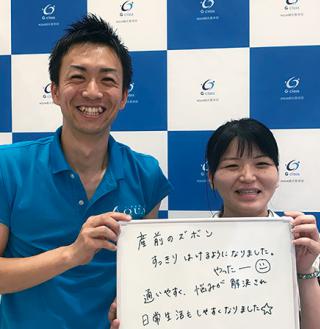 G class
G class
G class
産前のズボン
すっきりはけるようになりました。
やったー
通いやすく、悩みが解決され
日常生活もしやすくなりました☆